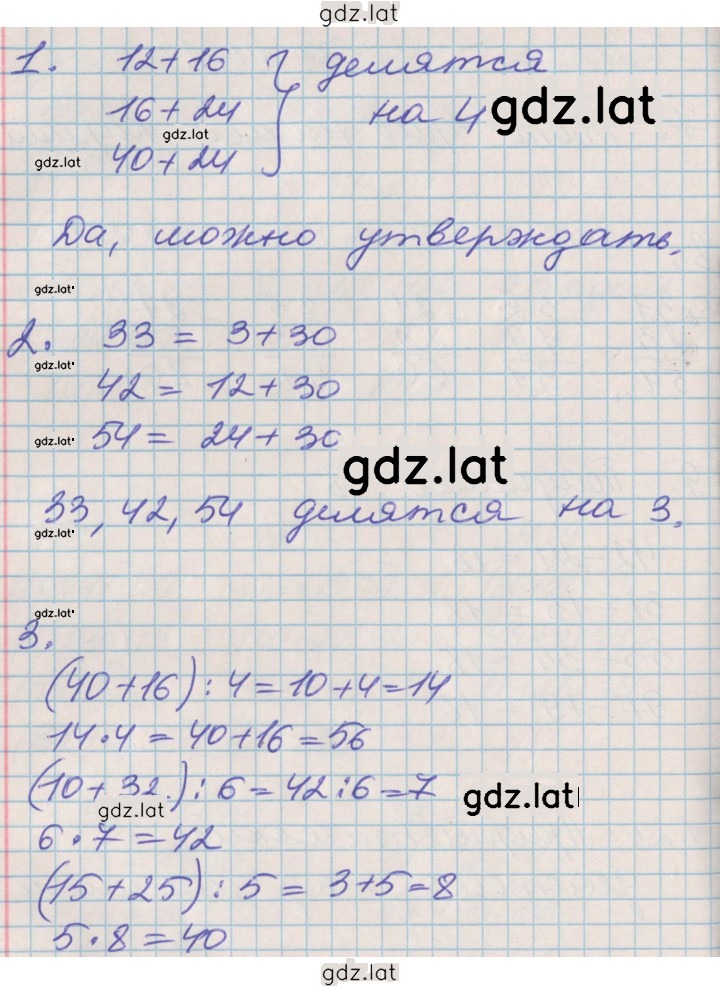 gdz.lat
1. 12+16 } делятся
16+24 на 4 gdz.lat
gdz.lat
gdz.lat 40+24
Да, можно утверждать.
gdz.lat
2. 33 = 3+30
gdz.lat
42 = 12+30
gdz.lat 54 = 24+30
gdz.lat
33, 42, 54 делятся на 3.
gdz.lat
gdz.lat
3.
(40+16):4=10+4=14
14·4=40+16=56
(10+32.):6=42:6=7 gdz.lat
gdz.lat
6·7=42
(15+25):5=3+5=8
5·8=40
gdz.lat